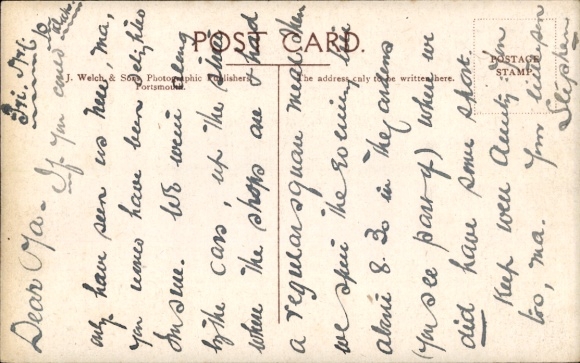 POST CARD.
J. Welch & Sons, Photographic Publishers,
Portsmouth.
The address only to be written here.
POSTAGE
STAMP
Dear Ma -
If you could
only have seen us here, Ma,
You would have been
I'm sure. We went
by the cars, up the
where the shops are & had
a regular square meal then
we spent the evening, till
about 8.30 in the gardens
(You see part of) where we
did have some sport.
Keep well Aunty Jim
too, Ma. Your
Stephen